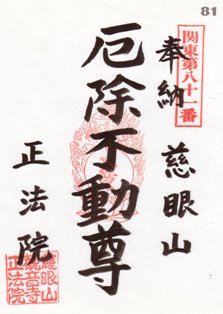 81
関東第八十一番
奉納 慈眼山
厄除不動尊
正法院
慈眼山
観音寺
正法院